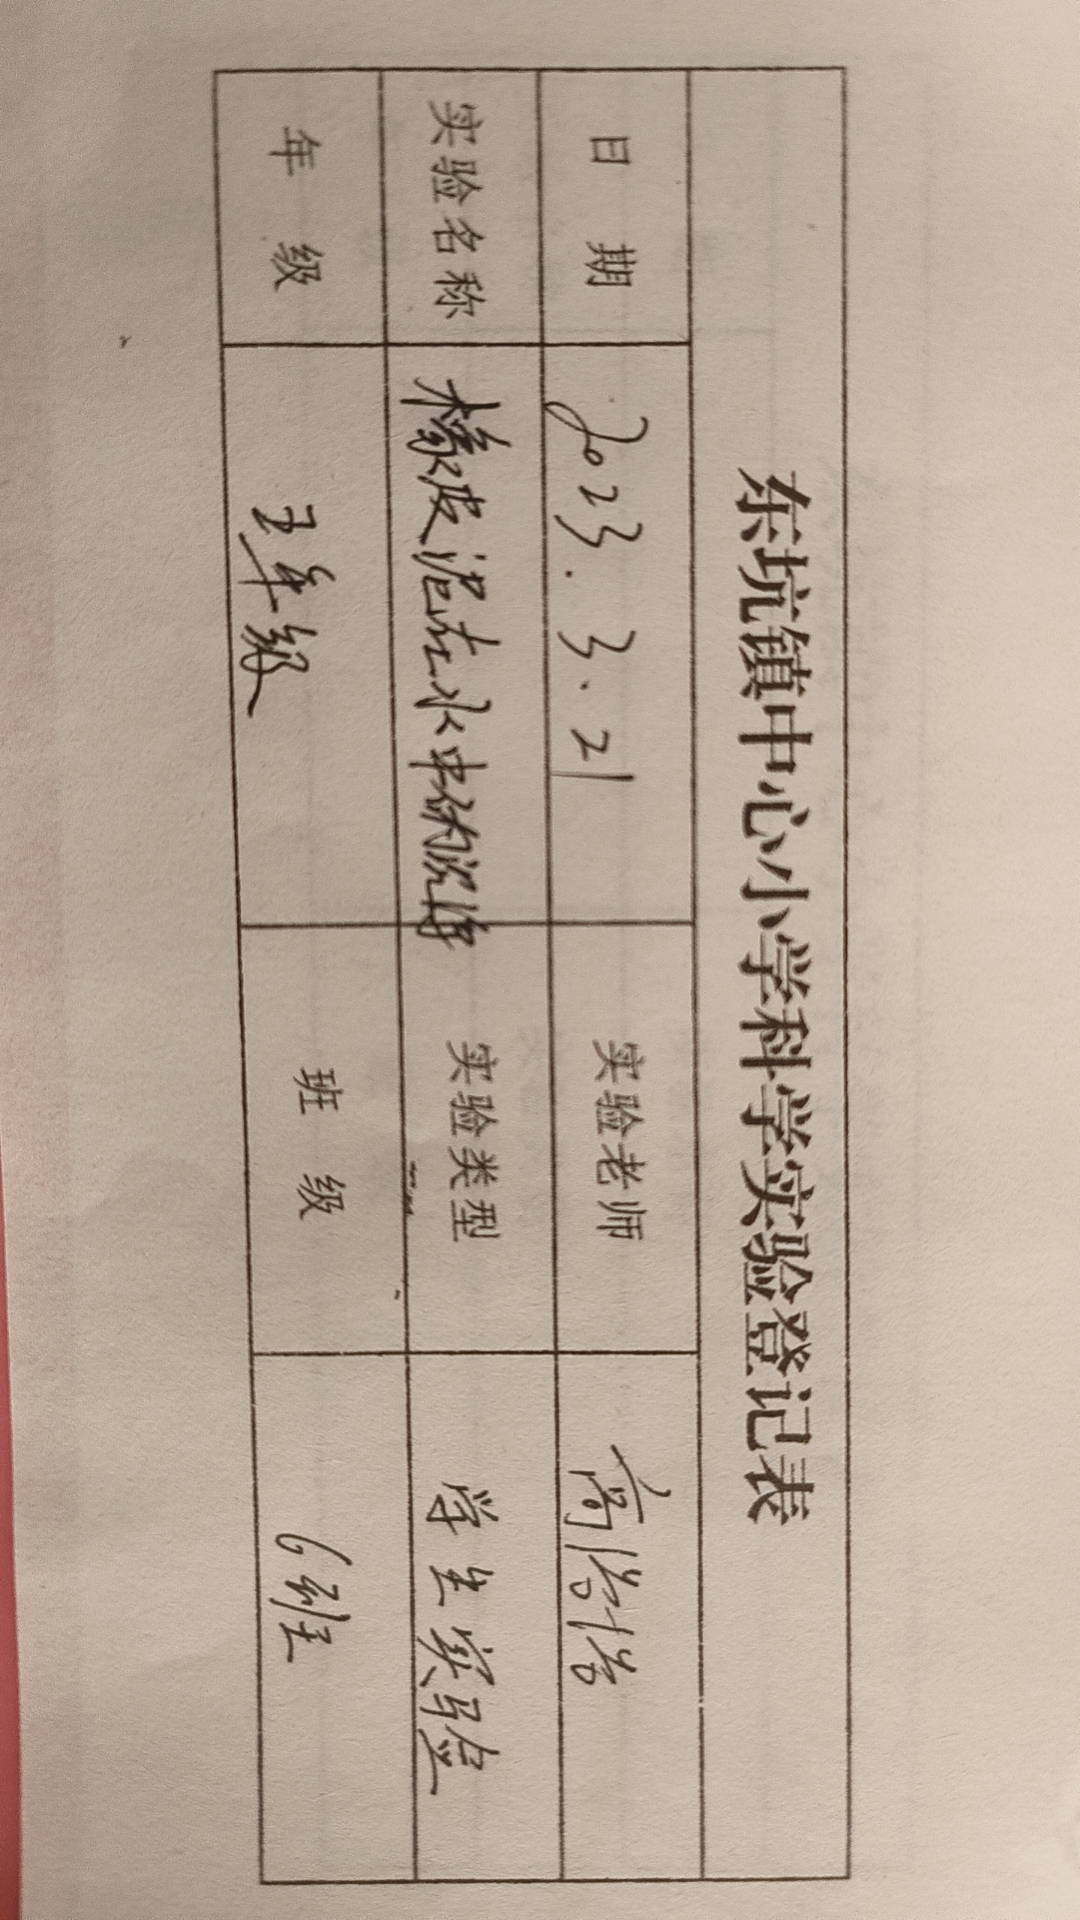 东坑镇中心小学科学实验登记表
日 期 2023.3.21 实验老师
实验名称 橡皮泥在水中的沉浮 实验类型 学生实验
年 级 五年级 班 级 6班